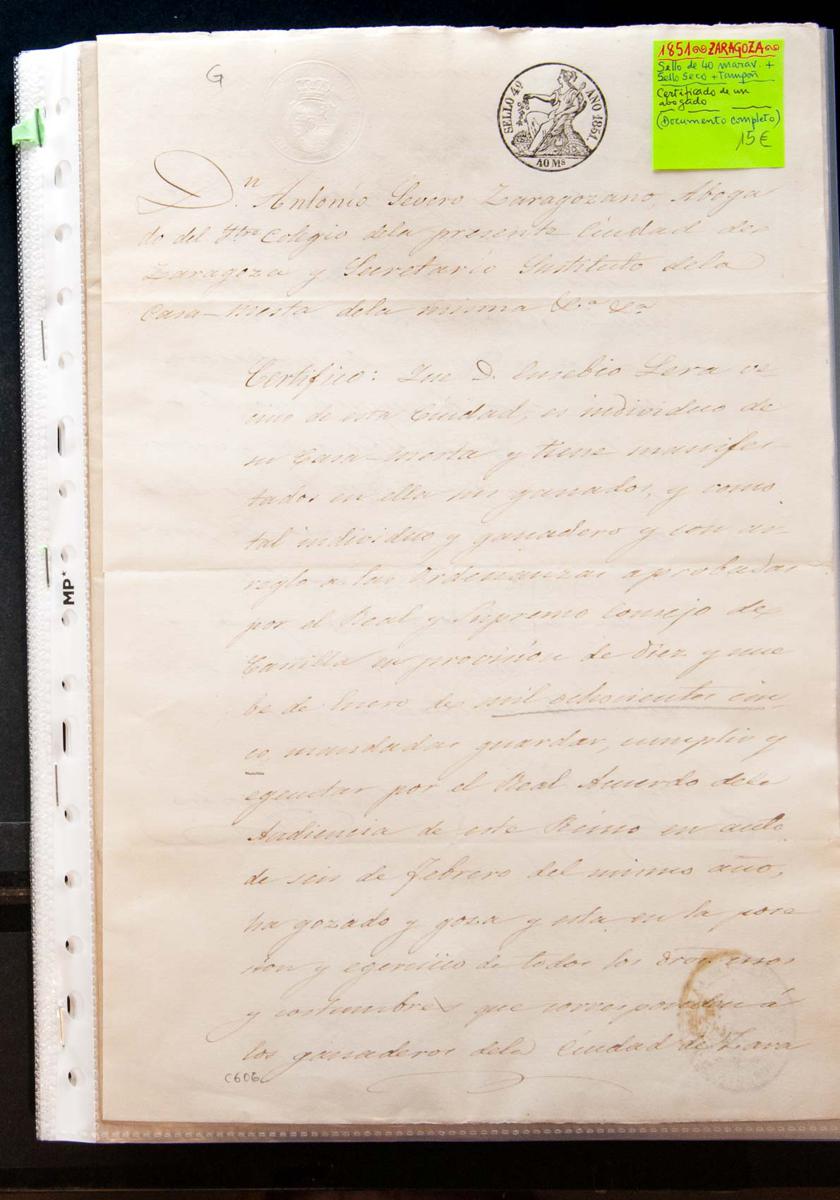 G
SELLO 4º AÑO 1851.
40 Ms
1851 ZARAGOZA
Sello de 40 marav. +
Sello Seco + Tampón
Certificado de un
abogado
(Documento completo)
15€
D.n Antonio Severo Zaragozano, Aboga
do del Iltre Colegio dela presente Ciudad de
Zaragoza y Secretario Instituto dela
Casa-mesta dela misma &a &a
Certifico: Que D. Eusebio Lera ve
cino de esta Ciudad, es individuo de
su Casa-mesta y tiene manifes
tados en ella sus ganados, y como
tal individuo y ganadero y con ar
reglo a las Ordenanzas aprobadas
por el Real y Supremo Consejo de
Castilla en provision de diez y nue
be de Enero de mil ochocientos cin
co, mandadas guardar, cumplir y
egecutar por el Real Acuerdo dela
Audiencia de este Reino en auto
de seis de Febrero del mismo año,
ha gozado y goza y está en la pose
sion y egercicio de todos los dros usos
y costumbres que corresponden á
los ganaderos dela Ciudad de Zara
C606
MP